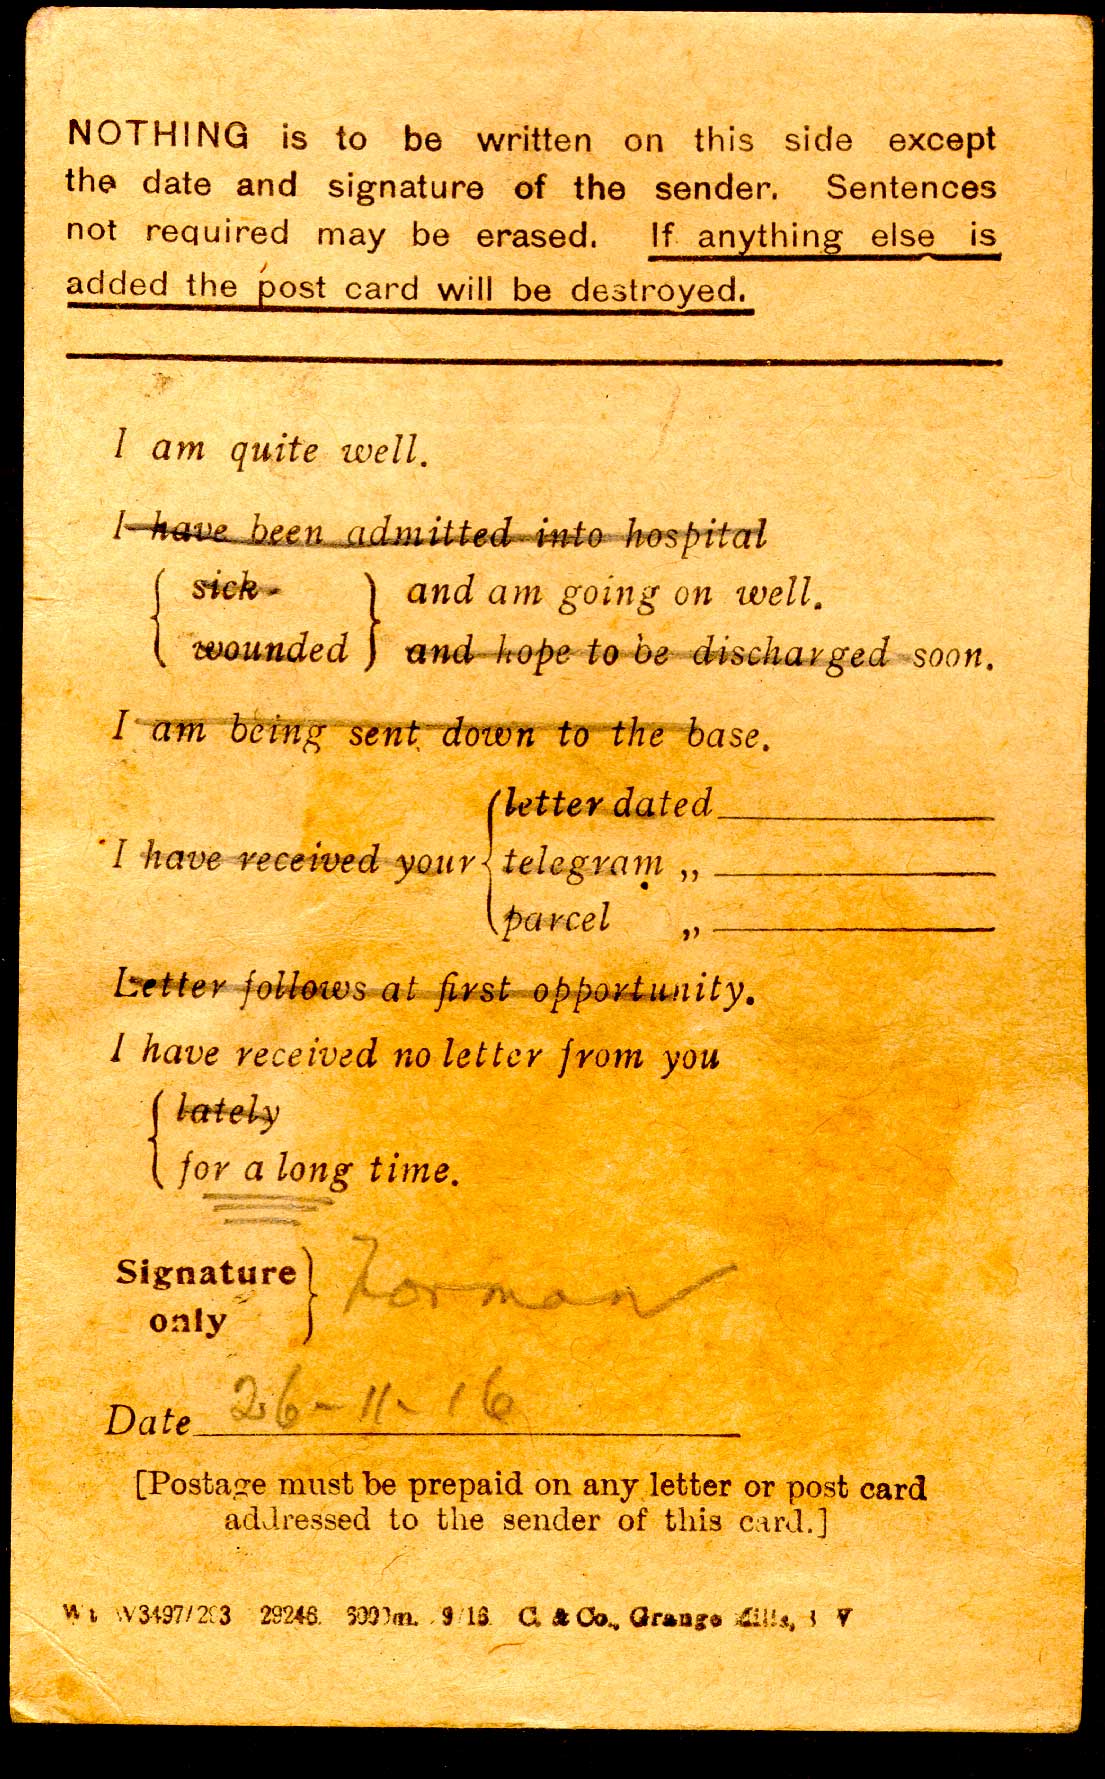 NOTHING is to be written on this side except
the date and signature of the sender. Sentences
not required may be erased. If anything else is
added the post card will be destroyed.
I am quite well.
I have been admitted into hospital
{ sick } and am going on well.
{ wounded } and hope to be discharged soon.
I am being sent down to the base.
{ letter dated
I have received your { telegram „
{ parcel „
Letter follows at first opportunity.
I have received no letter from you
{ lately
{ for a long time.
Signature
only } Forman
Date 26-11-16
[Postage must be prepaid on any letter or post card
addressed to the sender of this card.]
29246. 9/16. C. & Co., Grange